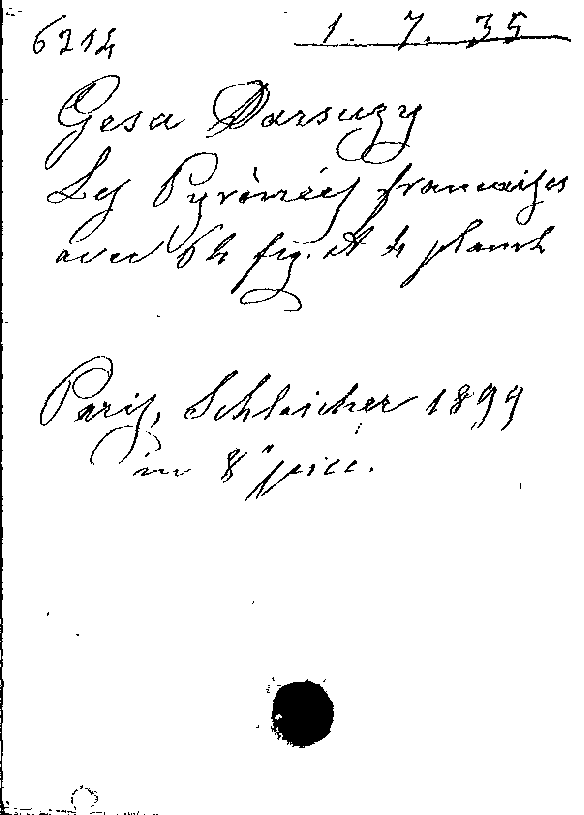 6214 1. 7. 35
Gesa Darsuzy
Les Pyrénées françaises
avec 64 fig. et 4 planch
Paris, Schleicher 1899
in 8° picc.